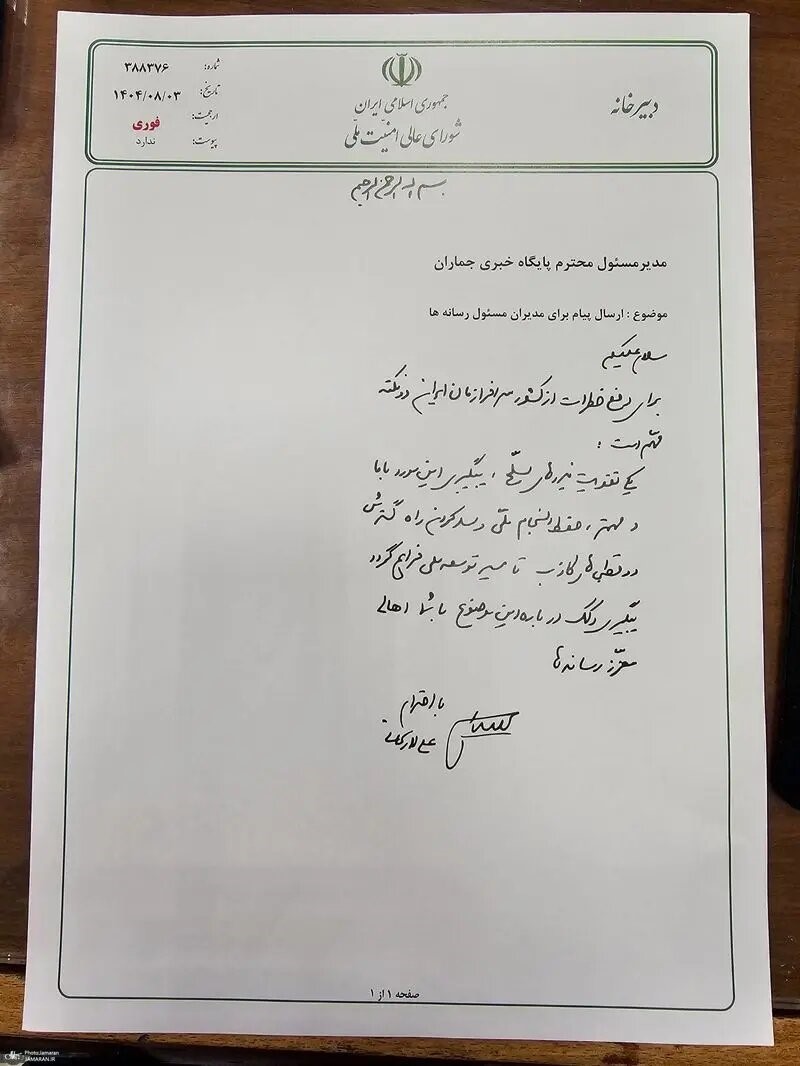 دبیرخانه
جمهوری اسلامی ایران
شورای عالی امنیت ملّی
شماره: ۳۸۸۳۷۶
تاریخ: ۱۴۰۴/۰۸/۰۳
ارجحیت: فوری
پیوست: ندارد
بسم الله الرحمن الرحیم
مدیرمسئول محترم پایگاه خبری جماران
موضوع : ارسال پیام برای مدیران مسئول رسانه ها
سلام علیکم
برای رفع خطرات از کشور سرافرازمان ایران دو نکته
مهّم است :
یکی تقویت نیروهای مسلّح ، پیگیری این مورد با ما
و مهمتر ، حفظ انسجام ملّی و سد کردن راه گسترش
دو قطبی های کاذب تا مسیر توسعه ملی فراهم گردد
پیگیری و کمک درباره این موضوع با شما اهالی
معزّز رسانه ها
با احترام
علی لاریجانی
صفحه ۱ از ۱
Photo:Jamaran
JAMARAN.IR